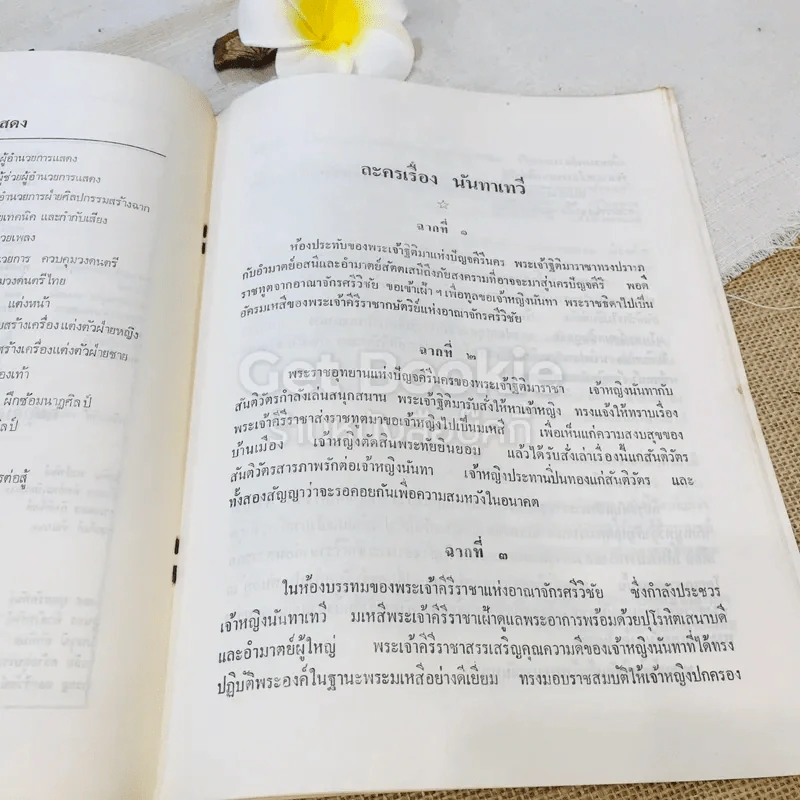 สดง
ผู้อำนวยการแสดง
ผู้ช่วยผู้อำนวยการแสดง
อำนวยการฝ่ายศิลปกรรมสร้างฉาก
ยเทคนิค และกำกับเสียง
วยเพลง
นวยการ ควบคุมวงดนตรี
มวงดนตรีไทย
แต่งหน้า
ยสร้างเครื่องแต่งตัวฝ่ายหญิง
สร้างเครื่องแต่งตัวฝ่ายชาย
องเท้า
ฝึกซ้อมนาฏศิลป์
ศิลป์
รต่อสู้
ละครเรื่อง นันทาเทวี
ฉากที่ ๑
ห้องประทับของพระเจ้าฐิติมาแห่งปัญจคีรีนคร พระเจ้าฐิติมาราชาทรงปรารภ
กับอำมาตย์อสนีและอำมาตย์สัตตเสนีถึงภัยสงครามที่อาจจะมาสู่นครปัญจคีรี พอดี
ราชทูตจากอาณาจักรศรีวิชัย ขอเข้าเฝ้า ฯ เพื่อทูลขอเจ้าหญิงนันทา พระราชธิดาไปเป็น
อัครมเหสีของพระเจ้าคีรีราชากษัตริย์แห่งอาณาจักรศรีวิชัย
ฉากที่ ๒
พระราชอุทยานแห่งปัญจคีรีนครของพระเจ้าฐิติมาราชา เจ้าหญิงนันทากับ
สันติวัตรกำลังเล่นสนุกสนาน พระเจ้าฐิติมารับสั่งให้หาเจ้าหญิง ทรงแจ้งให้ทราบเรื่อง
พระเจ้าคีรีราชาส่งราชทูตมาขอเจ้าหญิงไปเป็นมเหสี เพื่อเห็นแก่ความสงบสุขของ
บ้านเมือง เจ้าหญิงตัดสินพระทัยยินยอม แล้วได้รับสั่งเล่าเรื่องนี้แก่สันติวัตร
สันติวัตรสารภาพรักต่อเจ้าหญิงนันทา เจ้าหญิงประทานปิ่นทองแก่สันติวัตร และ
ทั้งสองสัญญาว่าจะรอคอยกันเพื่อความสมหวังในอนาคต
ฉากที่ ๓
ในห้องบรรทมของพระเจ้าคีรีราชาแห่งอาณาจักรศรีวิชัย ซึ่งกำลังประชวร
เจ้าหญิงนันทาเทวี มเหสีพระเจ้าคีรีราชาเฝ้าดูแลพระอาการพร้อมด้วยปุโรหิตเสนาบดี
และอำมาตย์ผู้ใหญ่ พระเจ้าคีรีราชาสรรเสริญคุณความดีของเจ้าหญิงนันทาที่ได้ทรง
ปฏิบัติพระองค์ในฐานะพระมเหสีอย่างดีเยี่ยม ทรงมอบราชสมบัติให้เจ้าหญิงปกครอง
Get Bookie